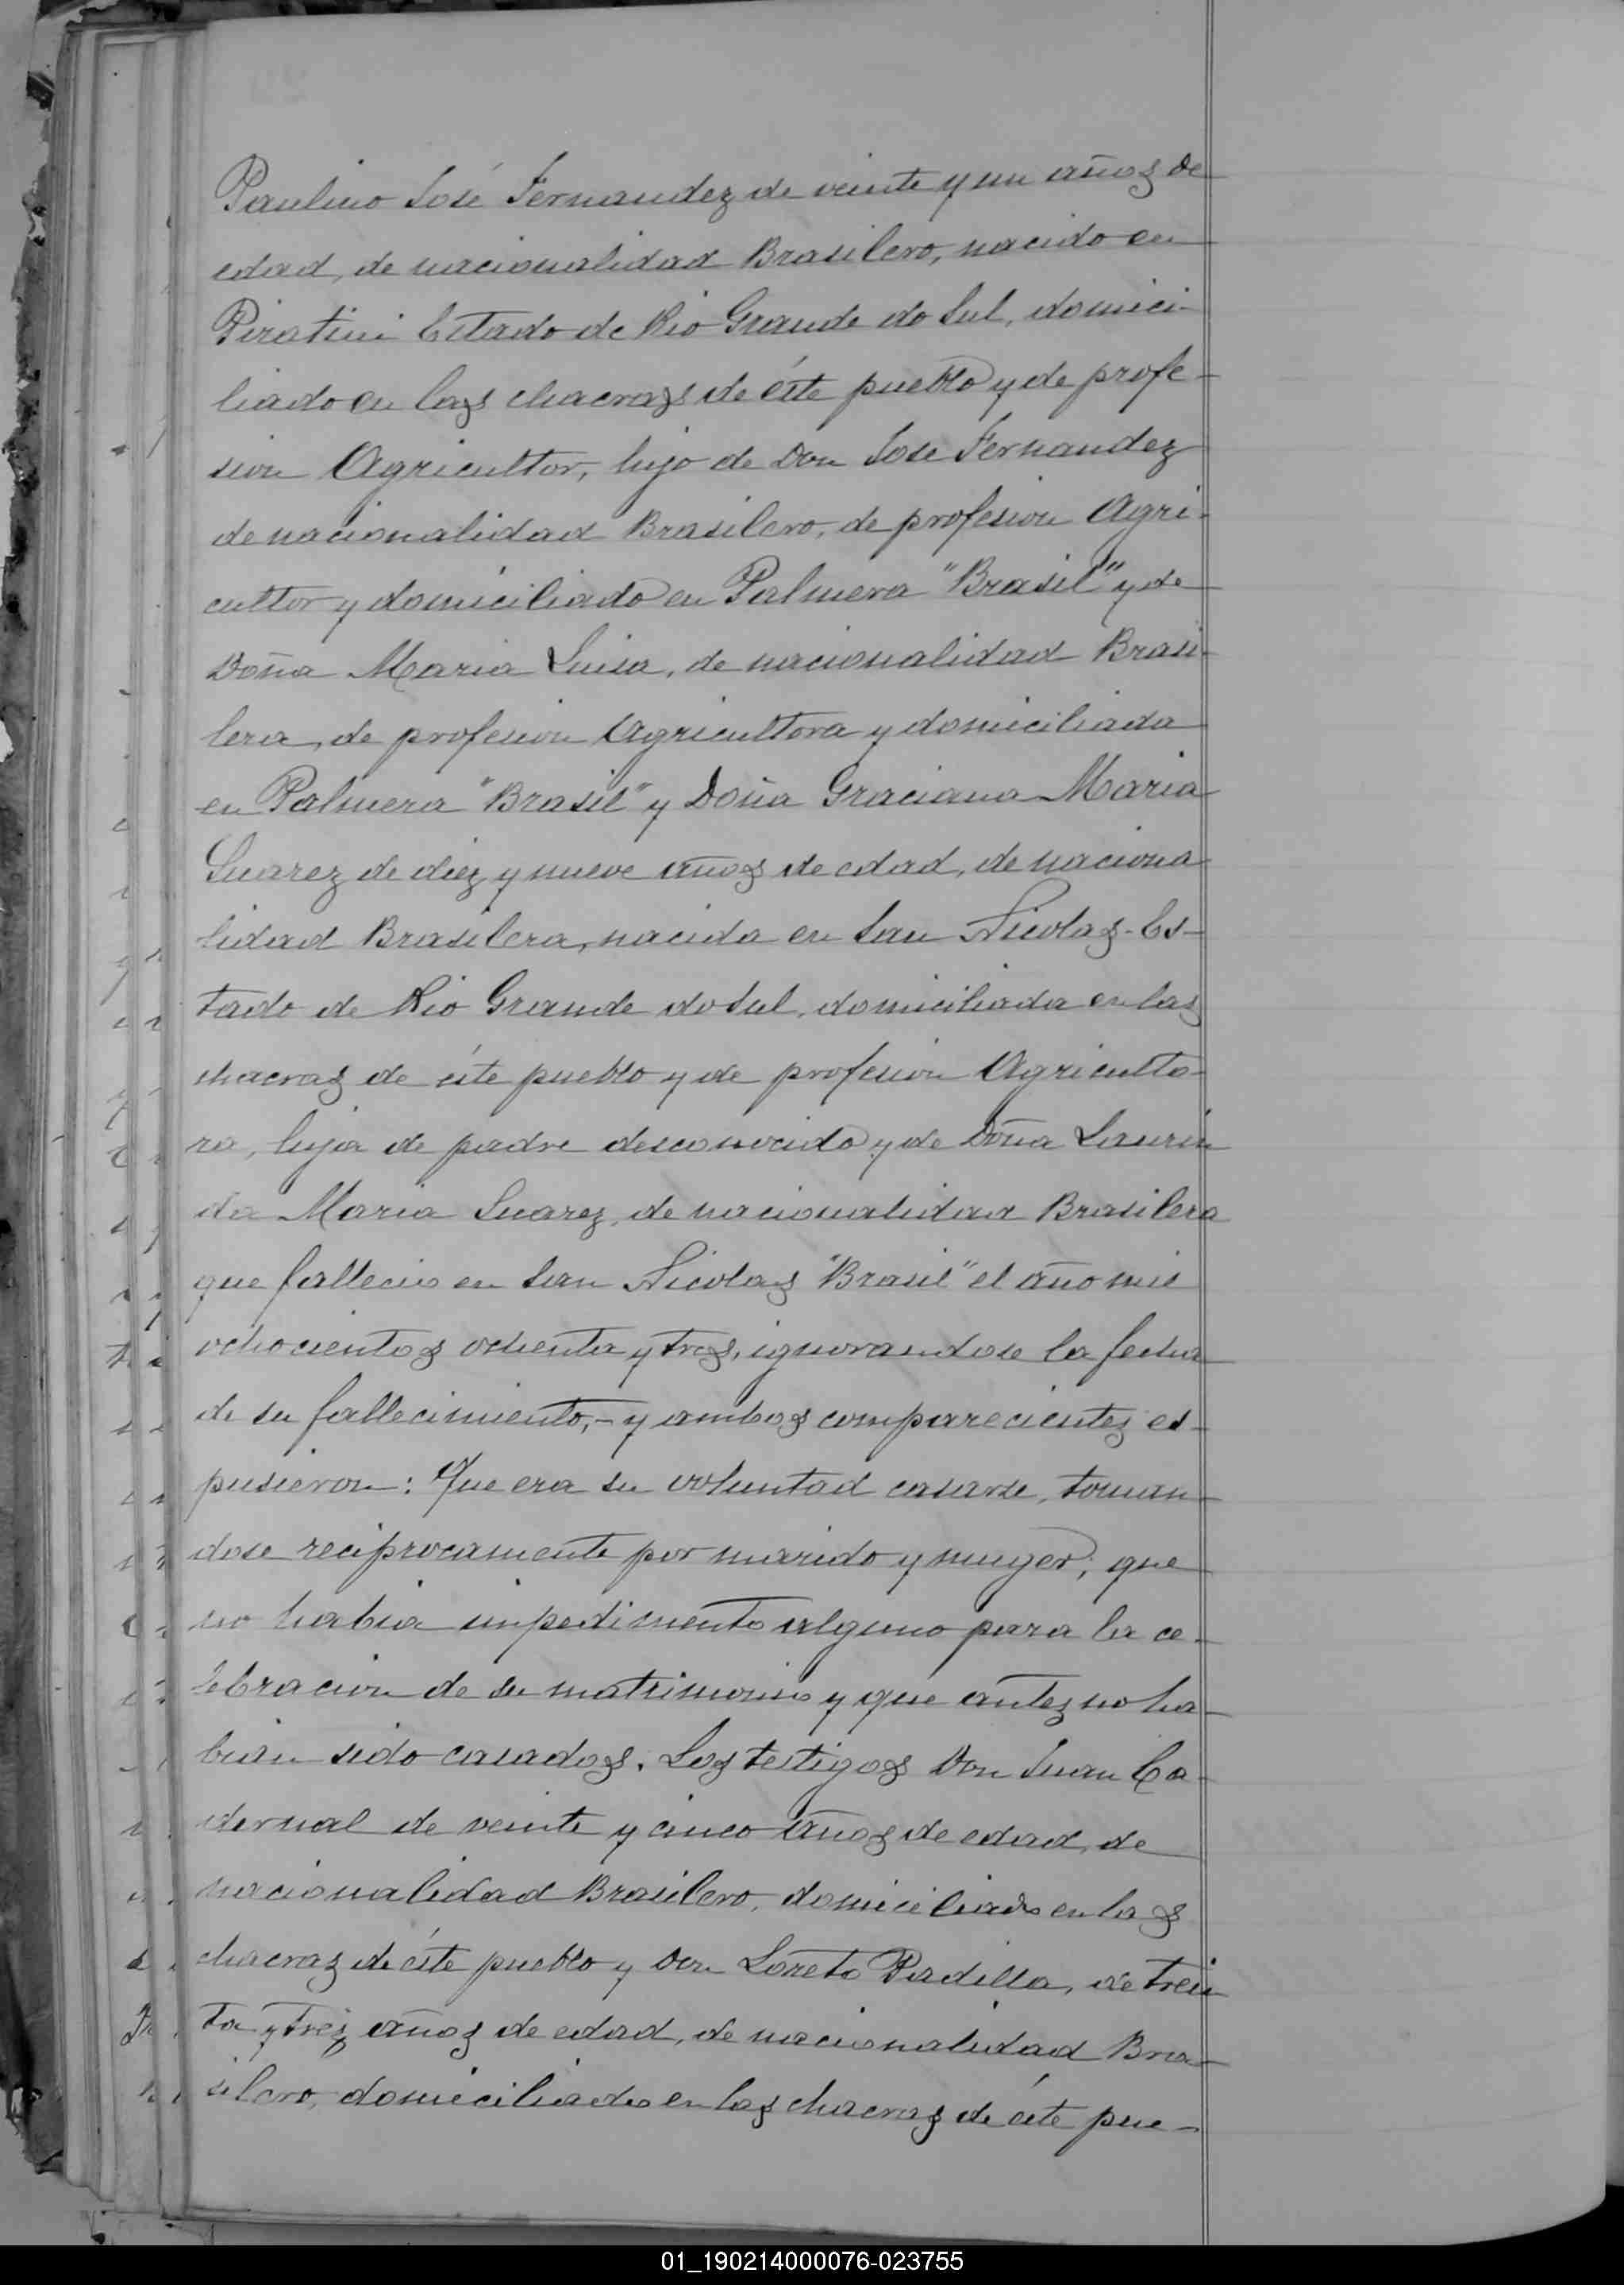 Paulino José Fernandez de veinte y un años de
edad, de nacionalidad Brasilero, nacido en
Piratini Estado de Rio Grande do Sul, domici-
liado en las chacras de éste pueblo y de profe-
sion Agricultor, hijo de Don José Fernandez
de nacionalidad Brasilero, de profesion Agri-
cultor y domiciliado en Palmera "Brasil" y de
Doña Maria Luisa, de nacionalidad Brasi-
lera, de profesion Agricultora y domiciliada
en Palmera "Brasil" y Doña Graciana Maria
Suarez de diez y nueve años de edad, de naciona
lidad Brasilera, nacida en San Nicolas - Es-
tado de Rio Grande do Sul, domiciliada en las
chacras de éste pueblo y de profesion Agriculto-
ra, hija de padre desconocido y de Doña Laurin
da Maria Suarez, de nacionalidad Brasilera
que fallecio en San Nicolas "Brasil" el año mil
ochocientos ochenta y tres, ignorandose la fecha
de su fallecimiento, - y ambos comparecientes es-
pusieron: Que era su voluntad casarse, toman-
dose reciprocamente por marido y muger, que
no habia impedimento alguno para la ce-
lebracion de su matrimonio y que antes no ha-
bian sido casados. Los testigos Don Juan Ca-
dernal de veinte y cinco años de edad, de
nacionalidad Brasilero, domiciliado en las
chacras de éste pueblo y Don Loreto Padilla, de trein
ta y tres años de edad, de nacionalidad Bra-
silero, domiciliado en las chacras de éste pue-
01_190214000076-023755